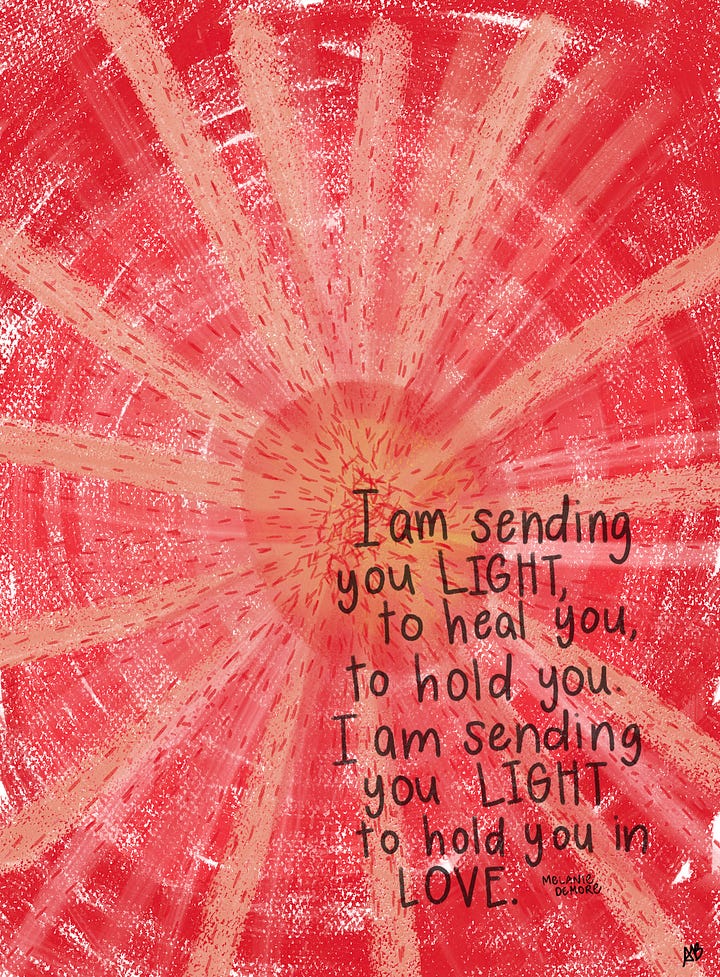 I am sending
you LIGHT,
to heal you,
to hold you.
I am sending
you LIGHT
to hold you in
LOVE.
MELANIE
DEMORE